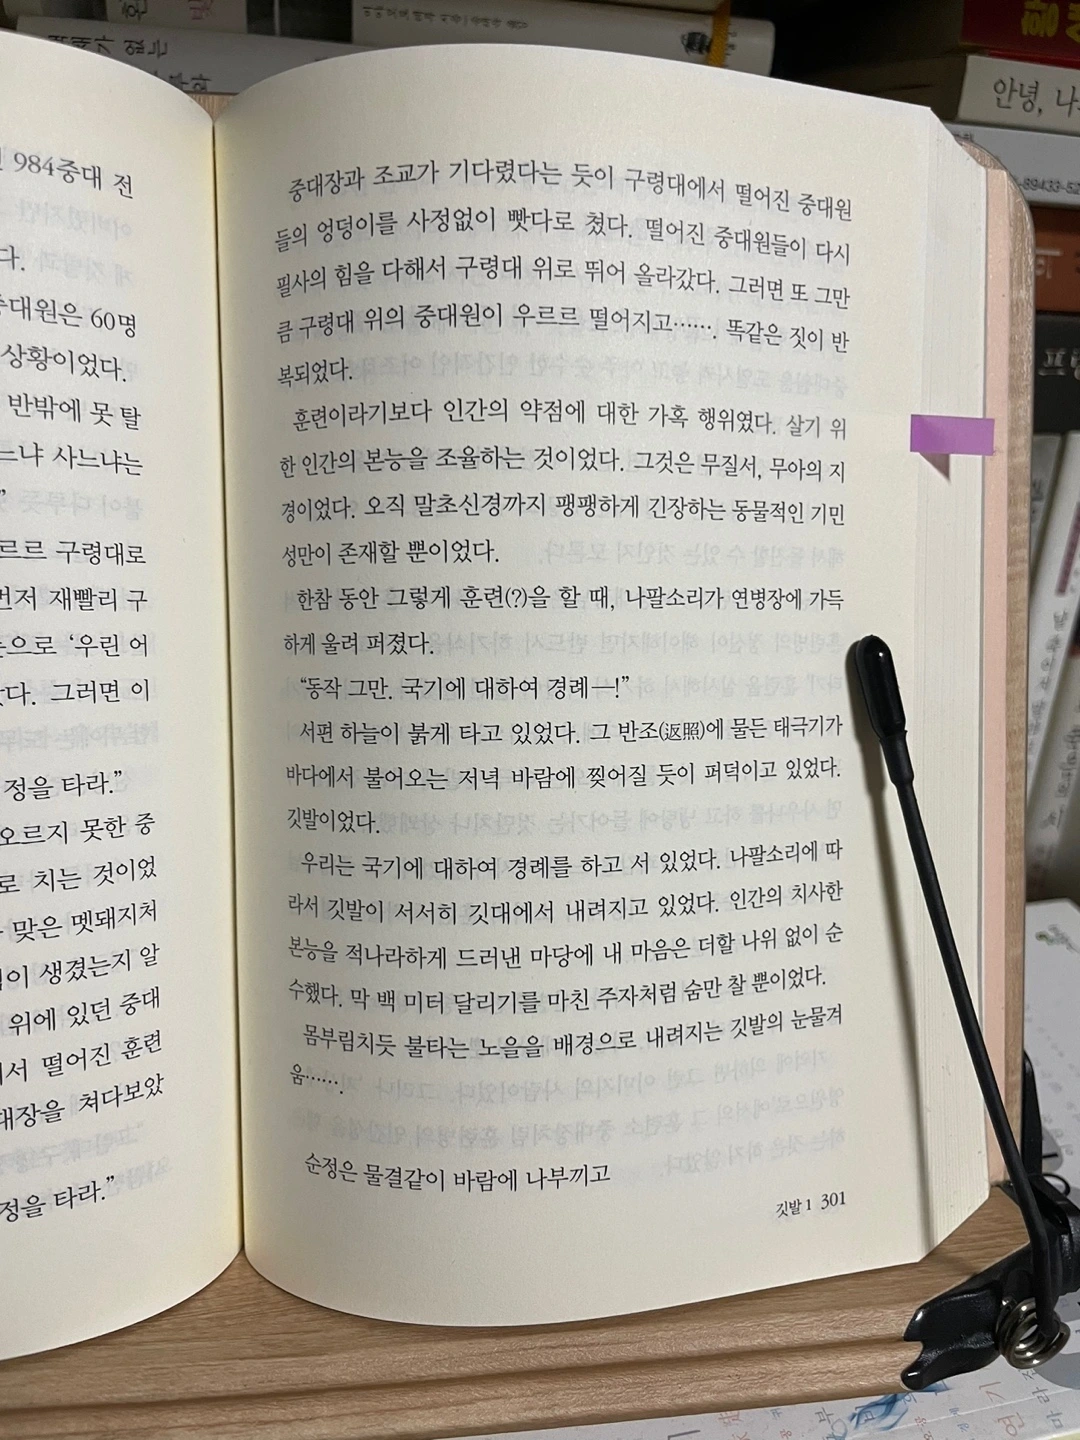 안녕, 나
89433-52
984중대 전
다.
중대원은 60명
상황이었다.
반밖에 못 탈
느냐 사느냐는
”
르르 구령대로
먼저 재빨리 구
으로 ‘우린 어
다. 그러면 이
정을 타라.”
오르지 못한 중
로 치는 것이었
맞은 멧돼지처
이 생겼는지 알
위에 있던 중대
서 떨어진 훈련
대장을 쳐다보았
정을 타라.”
중대장과 조교가 기다렸다는 듯이 구령대에서 떨어진 중대원
들의 엉덩이를 사정없이 빳다로 쳤다. 떨어진 중대원들이 다시
필사의 힘을 다해서 구령대 위로 뛰어 올라갔다. 그러면 또 그만
큼 구령대 위의 중대원이 우르르 떨어지고……. 똑같은 짓이 반
복되었다.
훈련이라기보다 인간의 약점에 대한 가혹 행위였다. 살기 위
한 인간의 본능을 조율하는 것이었다. 그것은 무질서, 무아의 지
경이었다. 오직 말초신경까지 팽팽하게 긴장하는 동물적인 기민
성만이 존재할 뿐이었다.
한참 동안 그렇게 훈련(?)을 할 때, 나팔소리가 연병장에 가득
하게 울려 퍼졌다.
“동작 그만. 국기에 대하여 경례—!”
서편 하늘이 붉게 타고 있었다. 그 반조(返照)에 물든 태극기가
바다에서 불어오는 저녁 바람에 찢어질 듯이 퍼덕이고 있었다.
깃발이었다.
우리는 국기에 대하여 경례를 하고 서 있었다. 나팔소리에 따
라서 깃발이 서서히 깃대에서 내려지고 있었다. 인간의 치사한
본능을 적나라하게 드러낸 마당에 내 마음은 더할 나위 없이 순
수했다. 막 백 미터 달리기를 마친 주자처럼 숨만 찰 뿐이었다.
몸부림치듯 불타는 노을을 배경으로 내려지는 깃발의 눈물겨
움…….
순정은 물결같이 바람에 나부끼고
깃발 1 301